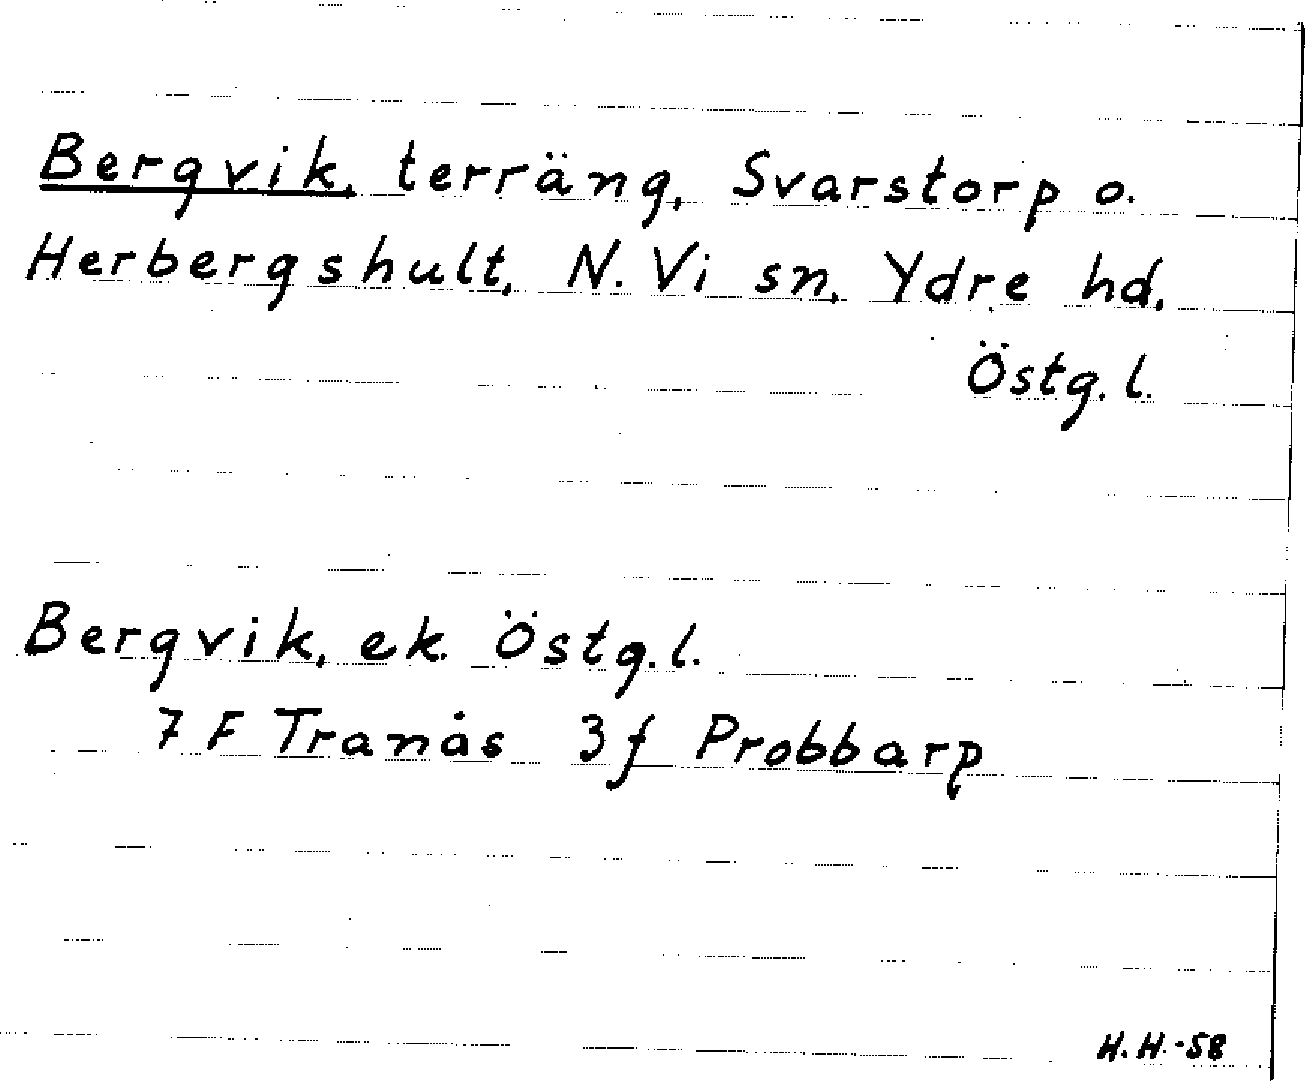 Bergvik, terräng, Svarstorp o.
Herbergshult, N. Vi sn, Ydre hd,
Östg. l.
Bergvik, ek. Östg. l.
7 F Tranås 3f Probbarp
H. H. -58